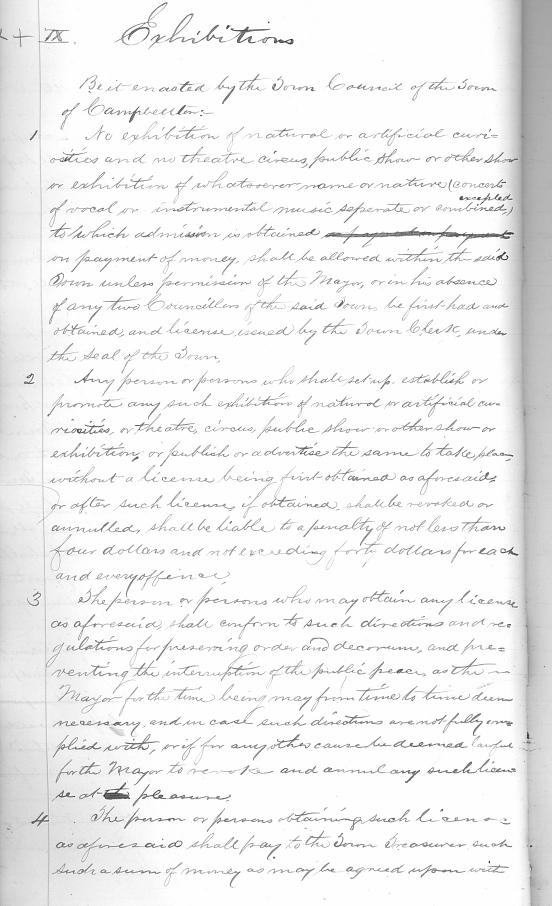 IX. Exhibitions
Be it enacted by the Town Council of the Town
of Campbellton:-
1 No exhibition of natural or artificial curi-
osities and no theatre, circus, public show or other show
or exhibition of whatsoever name or nature (concerts
excepted
of vocal or instrumental music seperate or combined,)
to which admission is obtained
on payment of money, shall be allowed within the said
Town unless permission of the Mayor, or in his absence
of any two Councillors of the said Town, be first had and
obtained, and license issued by the Town Clerk, under
the seal of the Town,
2 Any person or persons who shall set up establish or
promote any such exhibition of natural or artificial cu-
riosities, or theatre, circus, public show or other show or
exhibition, or publish or advertise the same to take place
without a license being first obtained as aforesaid,
or after such license, if obtained, shall be revoked or
annulled, shall be liable to a penalty of not less than
four dollars and not exceeding forty dollars for each
and every offence,
3 The person or persons who may obtain any license
as aforesaid, shall conform to such directions and re-
gulations for preserving order and decorum, and pre=
venting the interruption of the public peace, as the
Mayor for the time being may from time to time deem
necessary, and in case such directions are not fully com-
plied with, or if for any other cause be deemed lawful
for the Mayor to revoke and annul any such licen-
se at pleasure.
4 The person or persons obtaining such licen
as aforesaid shall pay to the Town Treasurer such
such a sum of money as may be agreed upon with